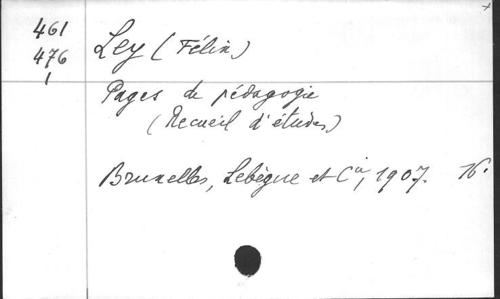 461
476
1
Ley (Félix)
Pages de pédagogie
(Recueil d'études)
Bruxelles, Lebègue et Cie, 1907. 16.